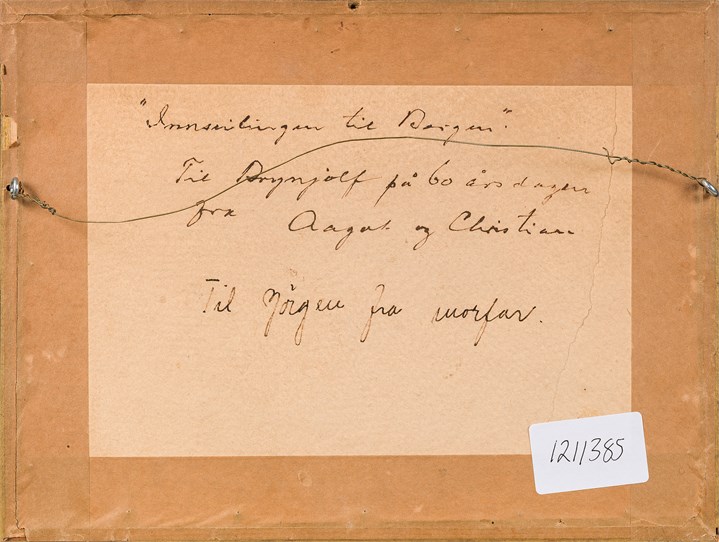 "Innseilingen til Bergen".
Til Brynjolf på 60 årsdagen
fra Aagot og Christian
Til Jörgen fra morfar.
1211385